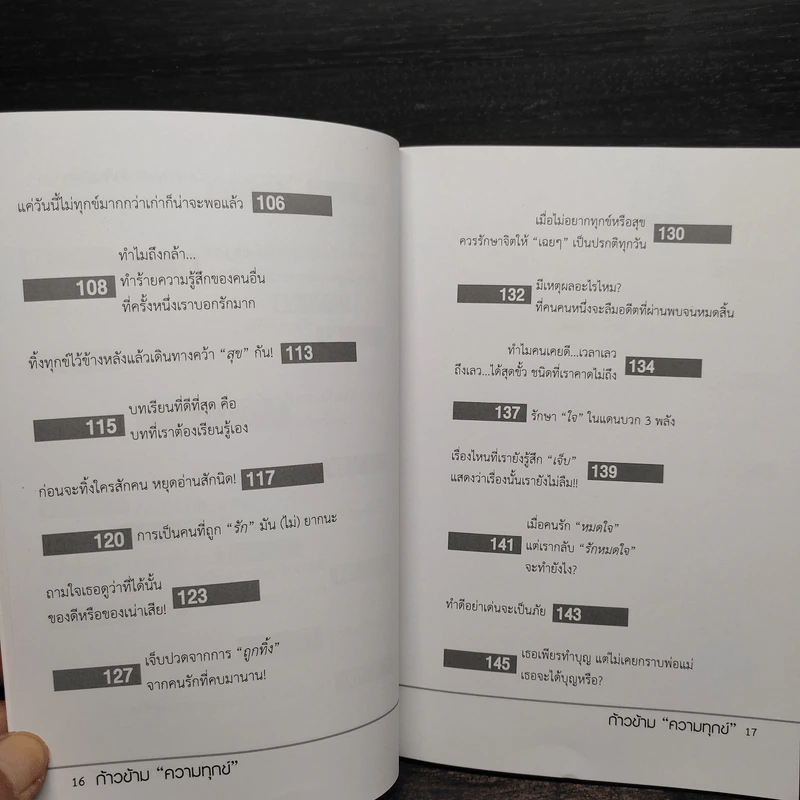 แค่วันนี้ไม่ทุกข์มากกว่าเก่าก็น่าจะพอแล้ว 106
ทำไมถึงกล้า...
108 ทำร้ายความรู้สึกของคนอื่น
ที่ครั้งหนึ่งเราบอกรักมาก
ทิ้งทุกข์ไว้ข้างหลังแล้วเดินทางคว้า “สุข” กัน! 113
บทเรียนที่ดีที่สุด คือ
115 บทที่เราต้องเรียนรู้เอง
ก่อนจะทิ้งใครสักคน หยุดอ่านสักนิด! 117
120 การเป็นคนที่ถูก “รัก” มัน (ไม่) ยากนะ
ถามใจเธอดูว่าที่ได้นั้น
ของดีหรือของเน่าเสีย! 123
เจ็บปวดจากการ “ถูกทิ้ง”
127 จากคนรักที่คบมานาน!
16 ก้าวข้าม “ความทุกข์”
เมื่อไม่อยากทุกข์หรือสุข
ควรรักษาจิตให้ “เฉยๆ” เป็นปรกติทุกวัน 130
132 มีเหตุผลอะไรไหม?
ที่คนคนหนึ่งจะลืมอดีตที่ผ่านพบจนหมดสิ้น
ทำไมคนเคยดี...เวลาเลว
ถึงเลว...ได้สุดขั้ว ชนิดที่เราคาดไม่ถึง 134
137 รักษา “ใจ” ในแดนบวก 3 พลัง
เรื่องไหนที่เรายังรู้สึก “เจ็บ”
แสดงว่าเรื่องนั้นเรายังไม่ลืม!! 139
เมื่อคนรัก “หมดใจ”
141 แต่เรากลับ “รักหมดใจ”
จะทำยังไง?
ทำดีอย่าเด่นจะเป็นภัย 143
145 เธอเพียรทำบุญ แต่ไม่เคยกราบพ่อแม่
เธอจะได้บุญหรือ?
ก้าวข้าม “ความทุกข์” 17